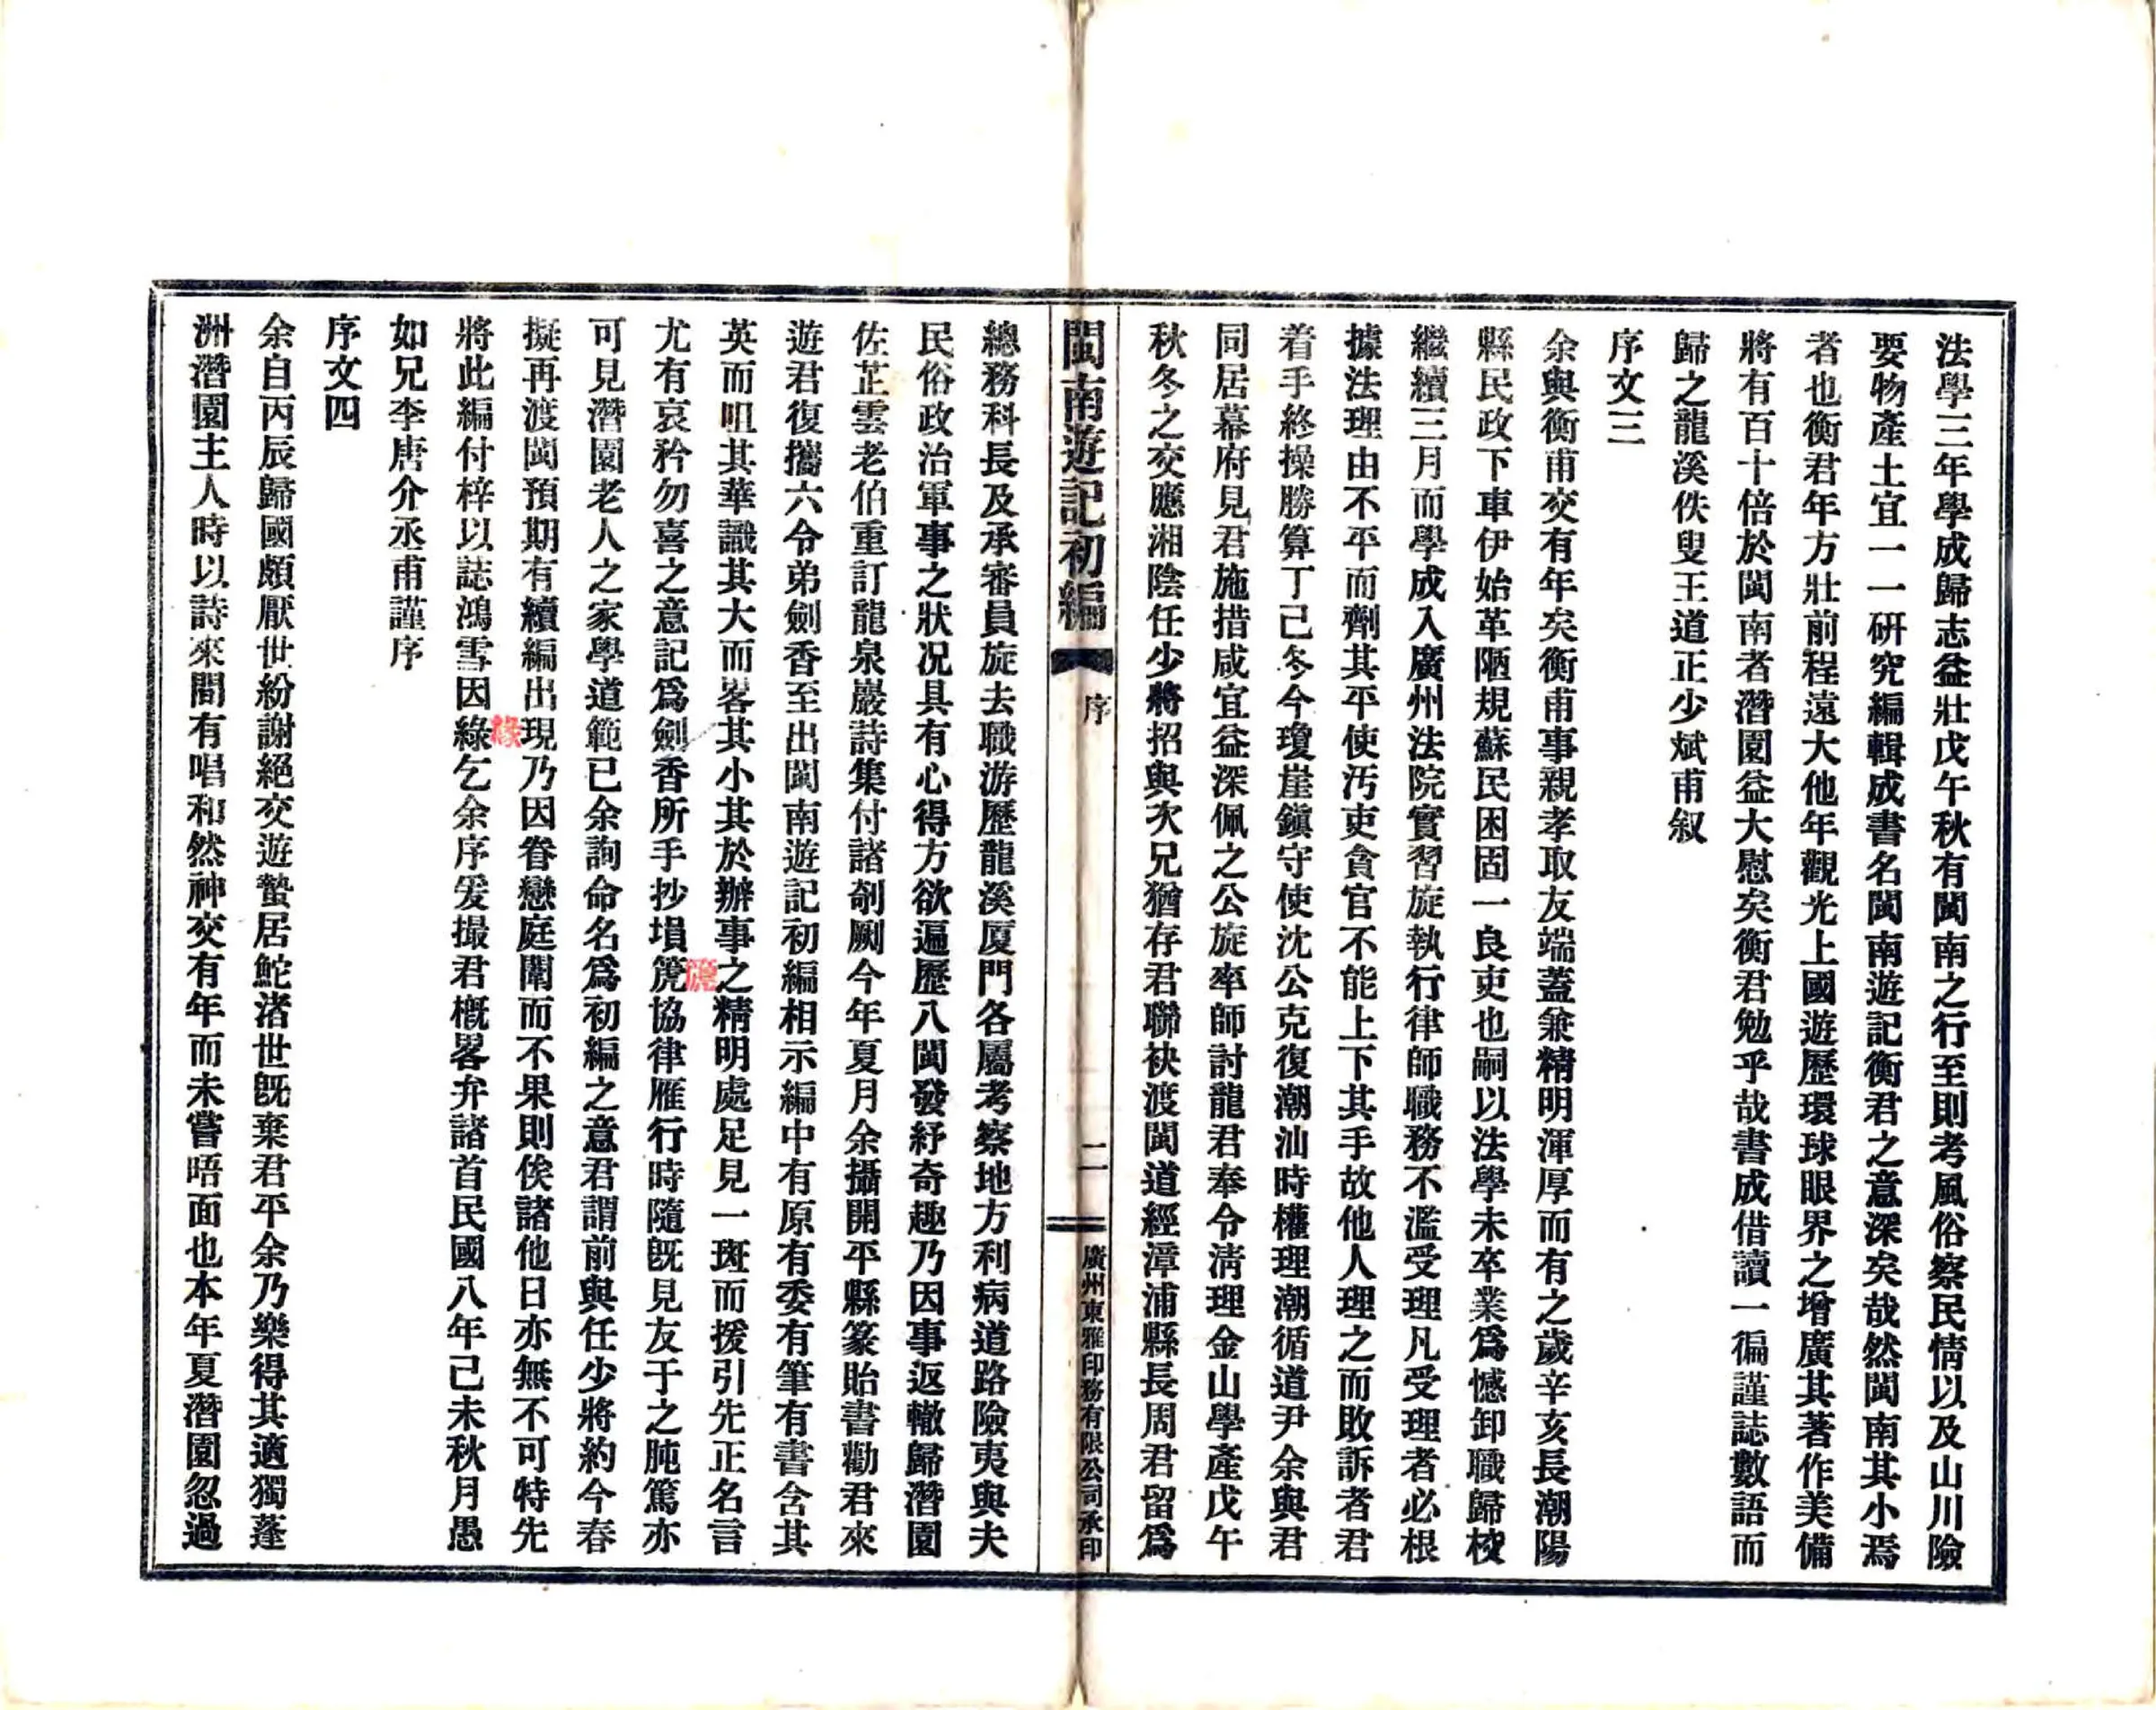 法學三年學成歸志益壯戊午秋有閩南之行至則考風俗察民情以及山川險
要物產土宜一一研究編輯成書名閩南遊記衡君之意深矣哉然閩南其小焉
者也衡君年方壯前程遠大他年觀光上國遊歷環球眼界之增廣其著作美備
將有百十倍於閩南者潛園益大慰矣衡君勉乎哉書成借讀一徧謹誌數語而
歸之龍溪佚叟王道正少斌甫叙
序文三
余與衡甫交有年矣衡甫事親孝取友端蓋兼精明渾厚而有之歲辛亥長潮陽
縣民政下車伊始革陋規蘇民困固一良吏也嗣以法學未卒業爲憾卸職歸校
繼續三月而學成入廣州法院實習旋執行律師職務不濫受理凡受理者必根
據法理由不平而劑其平使汚吏貪官不能上下其手故他人理之而敗訴者君
着手終操勝算丁己冬今瓊崖鎭守使沈公克復潮汕時權理潮循道尹余與君
同居幕府見君施措咸宜益深佩之公旋率師討龍君奉令淸理金山學產戊午
秋冬之交應湘陰任少將招與次兄猶存君聯袂渡閩道經漳浦縣長周君留爲
閩南遊記初編
序
二
廣州東雅印務有限公司承印
總務科長及承審員旋去職游歷龍溪厦門各屬考察地方利病道路險夷與夫
民俗政治軍事之狀况具有心得方欲遍歷八閩發紓奇趣乃因事返轍歸潛園
佐芷雲老伯重訂龍泉巖詩集付諸剞劂今年夏月余攝開平縣篆貽書勸君來
遊君復攜六令弟劍香至出閩南遊記初編相示編中有原有委有筆有書含其
英而咀其華識其大而畧其小其於辦事之精明處足見一斑而援引先正名言
尤有哀矜勿喜之意記爲劍香所手抄塤箎協律雁行時隨旣見友于之肫篤亦
篪
可見潛園老人之家學道範已余詢命名爲初編之意君謂前與任少將約今春
擬再渡閩預期有續編出現乃因眷戀庭闈而不果則俟諸他日亦無不可特先
將此編付梓以誌鴻雪因綠乞余序爰撮君槪畧弁諸首民國八年己未秋月愚
緣
如兄李唐介丞甫謹序
序文四
余自丙辰歸國頗厭世紛謝絕交遊蟄居鮀渚世旣棄君平余乃樂得其適獨蓬
洲潛園主人時以詩來間有唱和然神交有年而未嘗晤面也本年夏潛園忽過